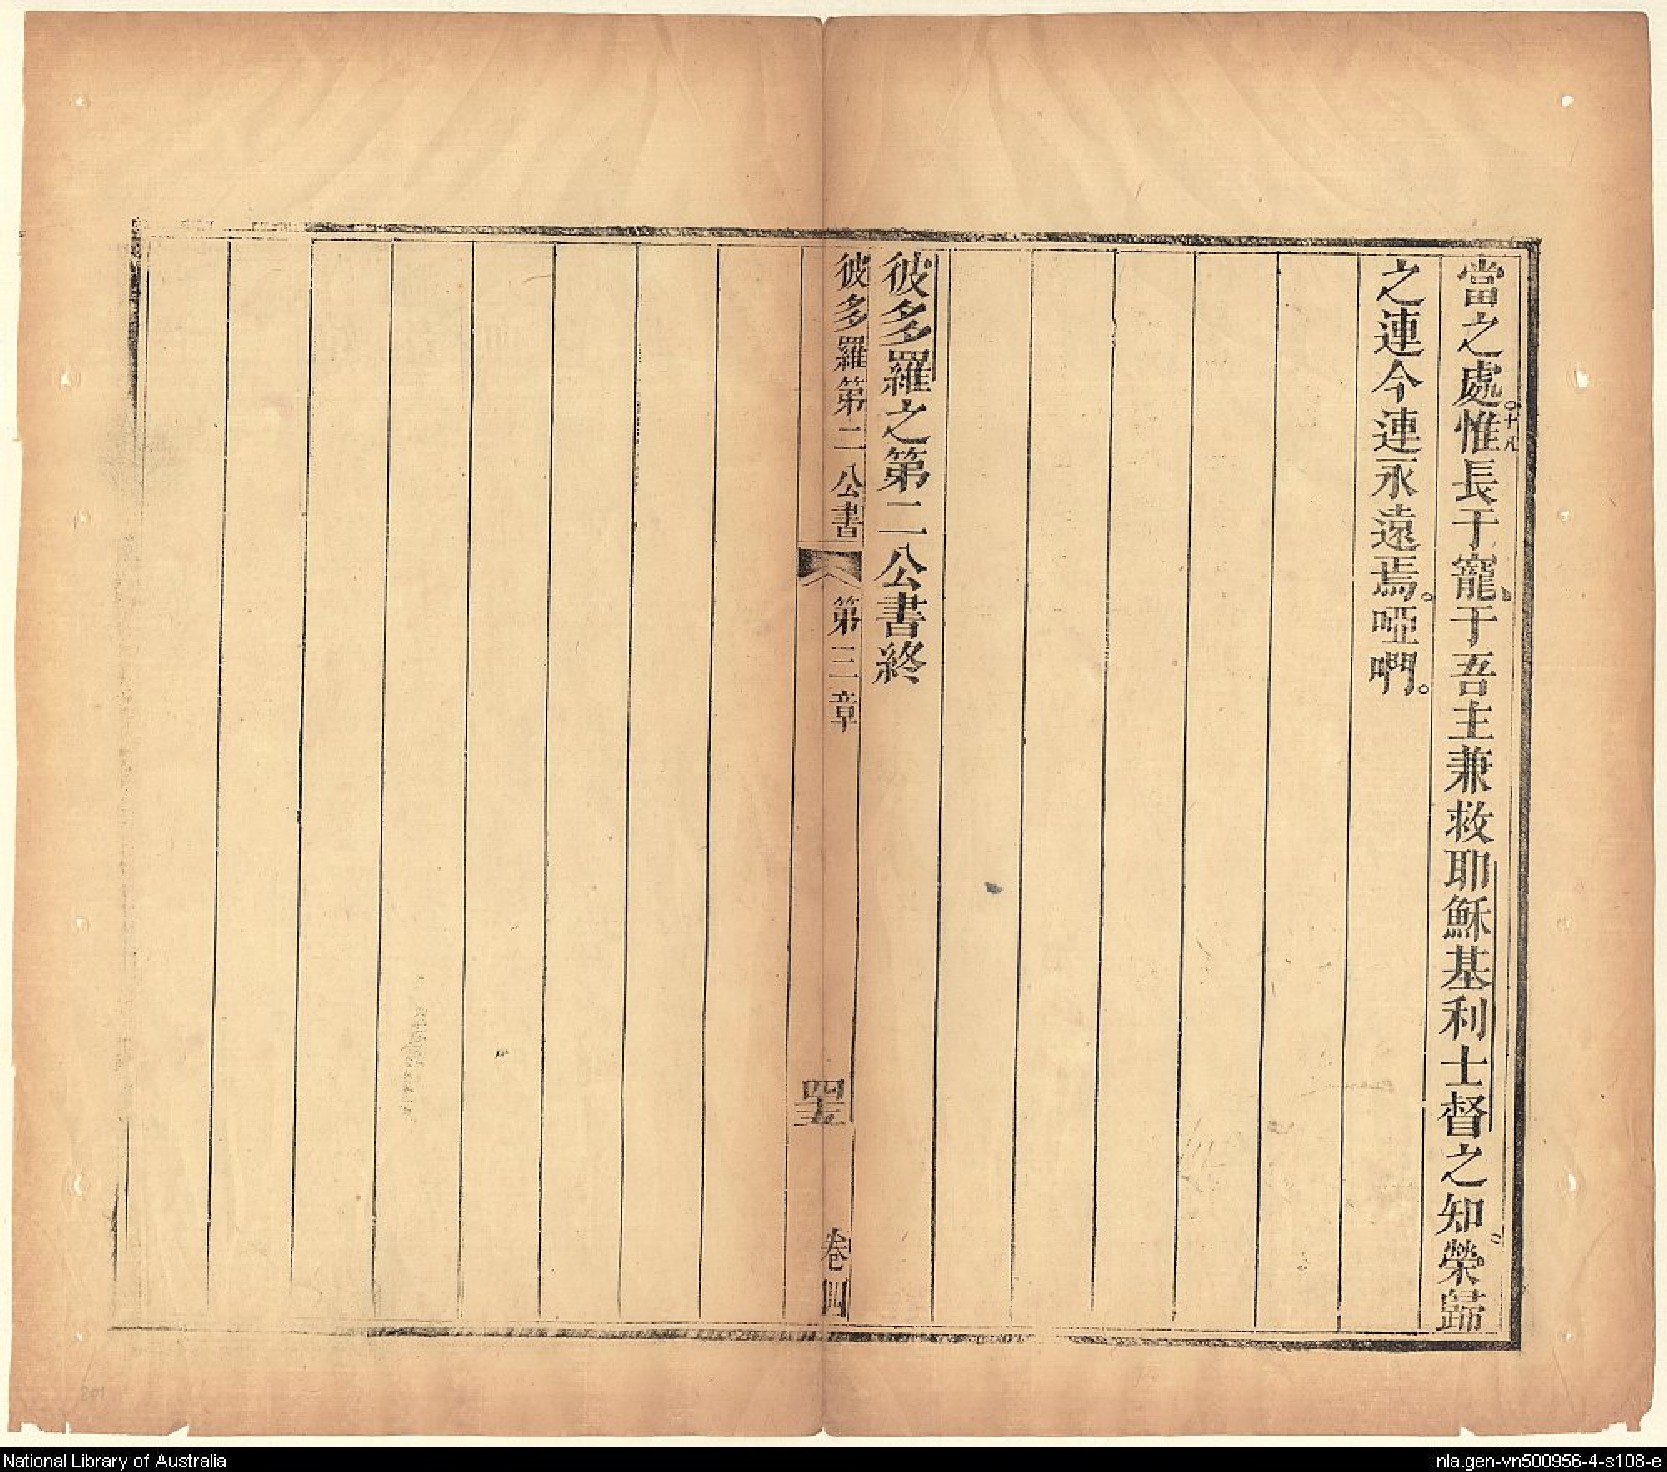 當之處。十八惟長于寵、于吾主兼救耶穌基利士督之知、榮歸
之連今連永遠焉。啞啊。
彼多羅之第二公書終
彼多羅第二公書 第三章 四十五 卷四
National Library of Australia
nla.gen-vn500956-4-s108-e